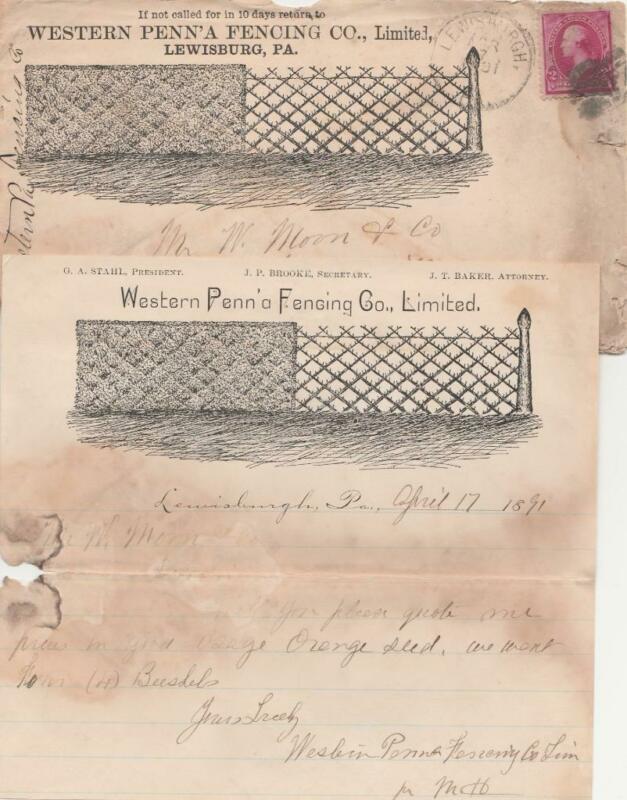 If not called for in 10 days return to
WESTERN PENN'A FENCING CO., Limited,
LEWISBURG, PA.
LEWISBURGH,
2
Mr W. Moon & Co
G. A. STAHL, PRESIDENT. J. P. BROOKE, SECRETARY. J. T. BAKER, ATTORNEY.
Western Penn'a Fencing Co., Limited.
Lewisburgh, Pa., April 17 1891
W. Moon Co
you please quote me
prices on good Osage Orange seed. we want
Four (4) Bushels
Yours Truly
Western Penna Fencing Co Lim